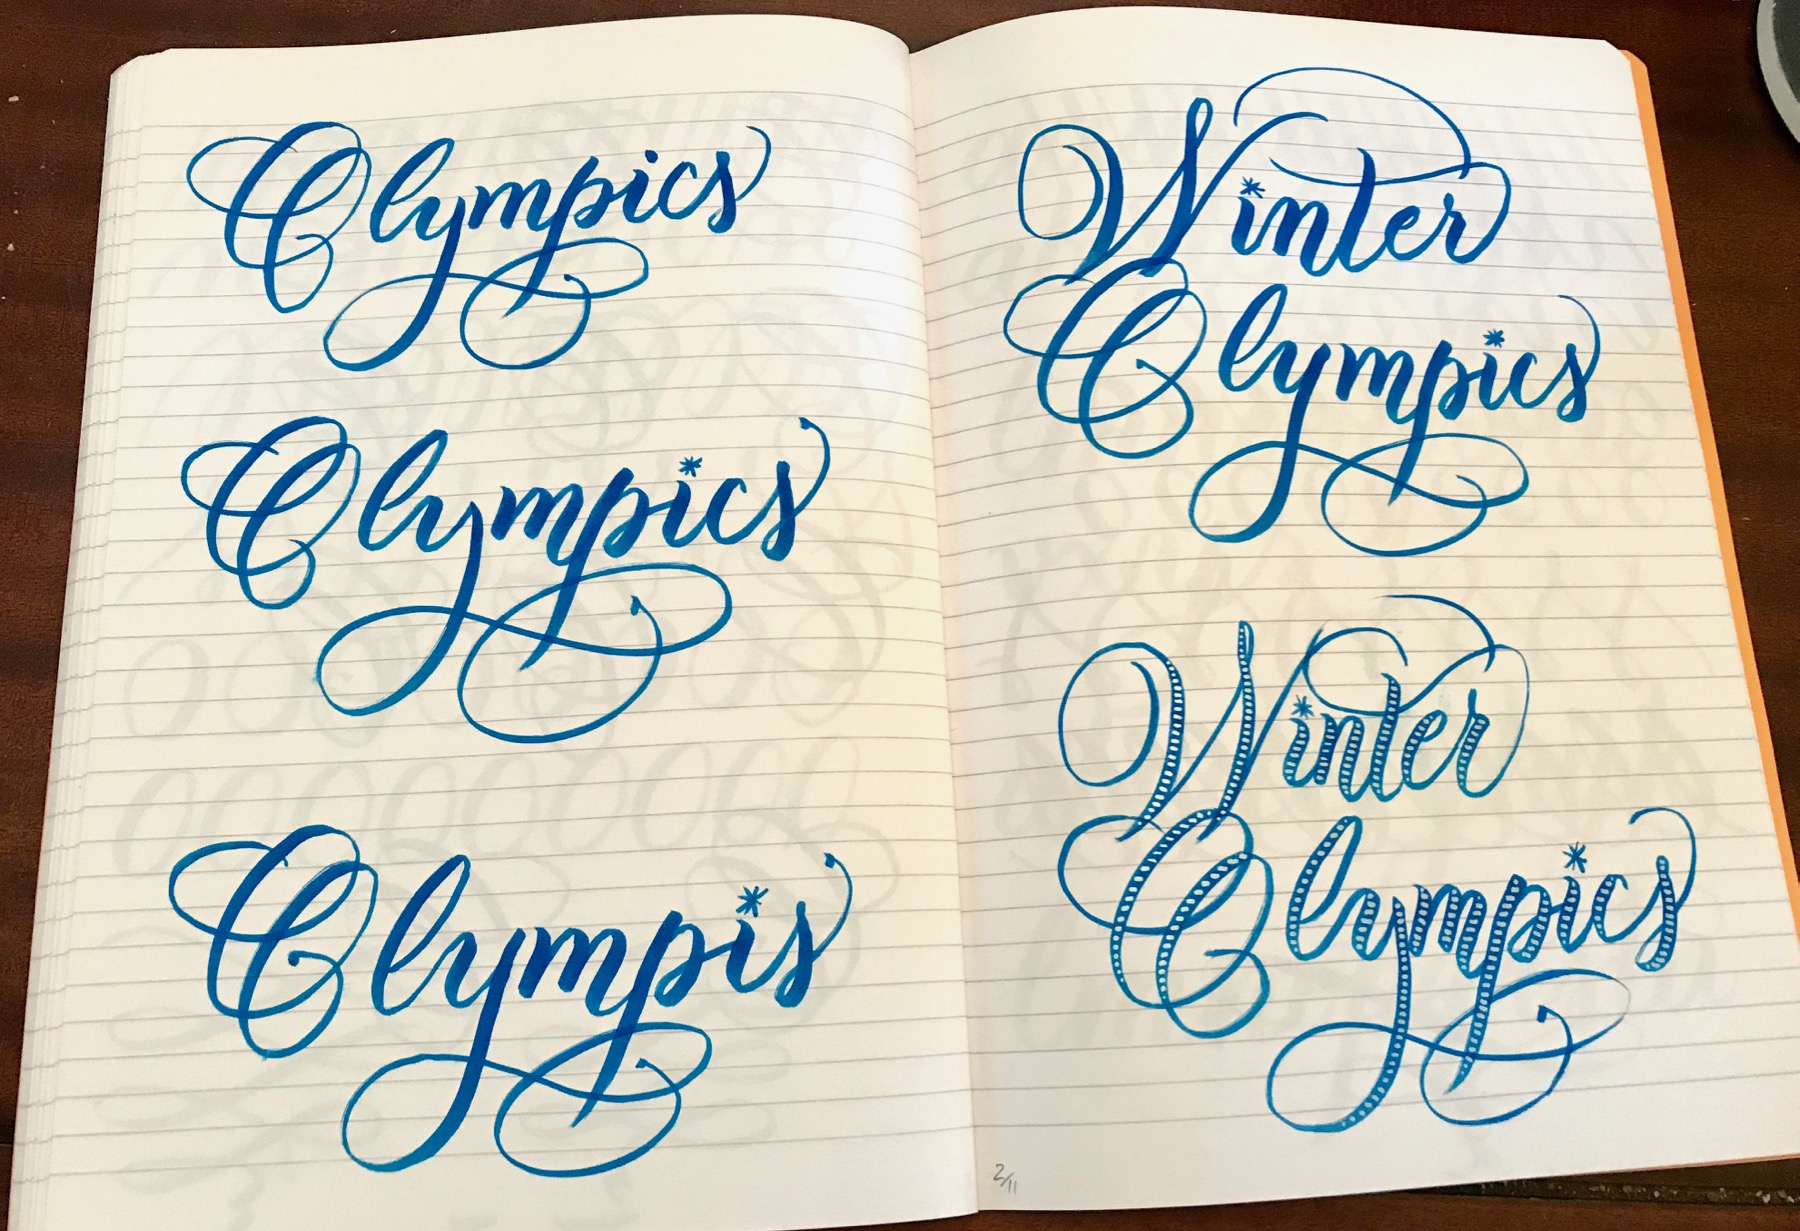 Olympics
Olympics
Olympis
Winter
Olympics
Winter
Olympics
2/11